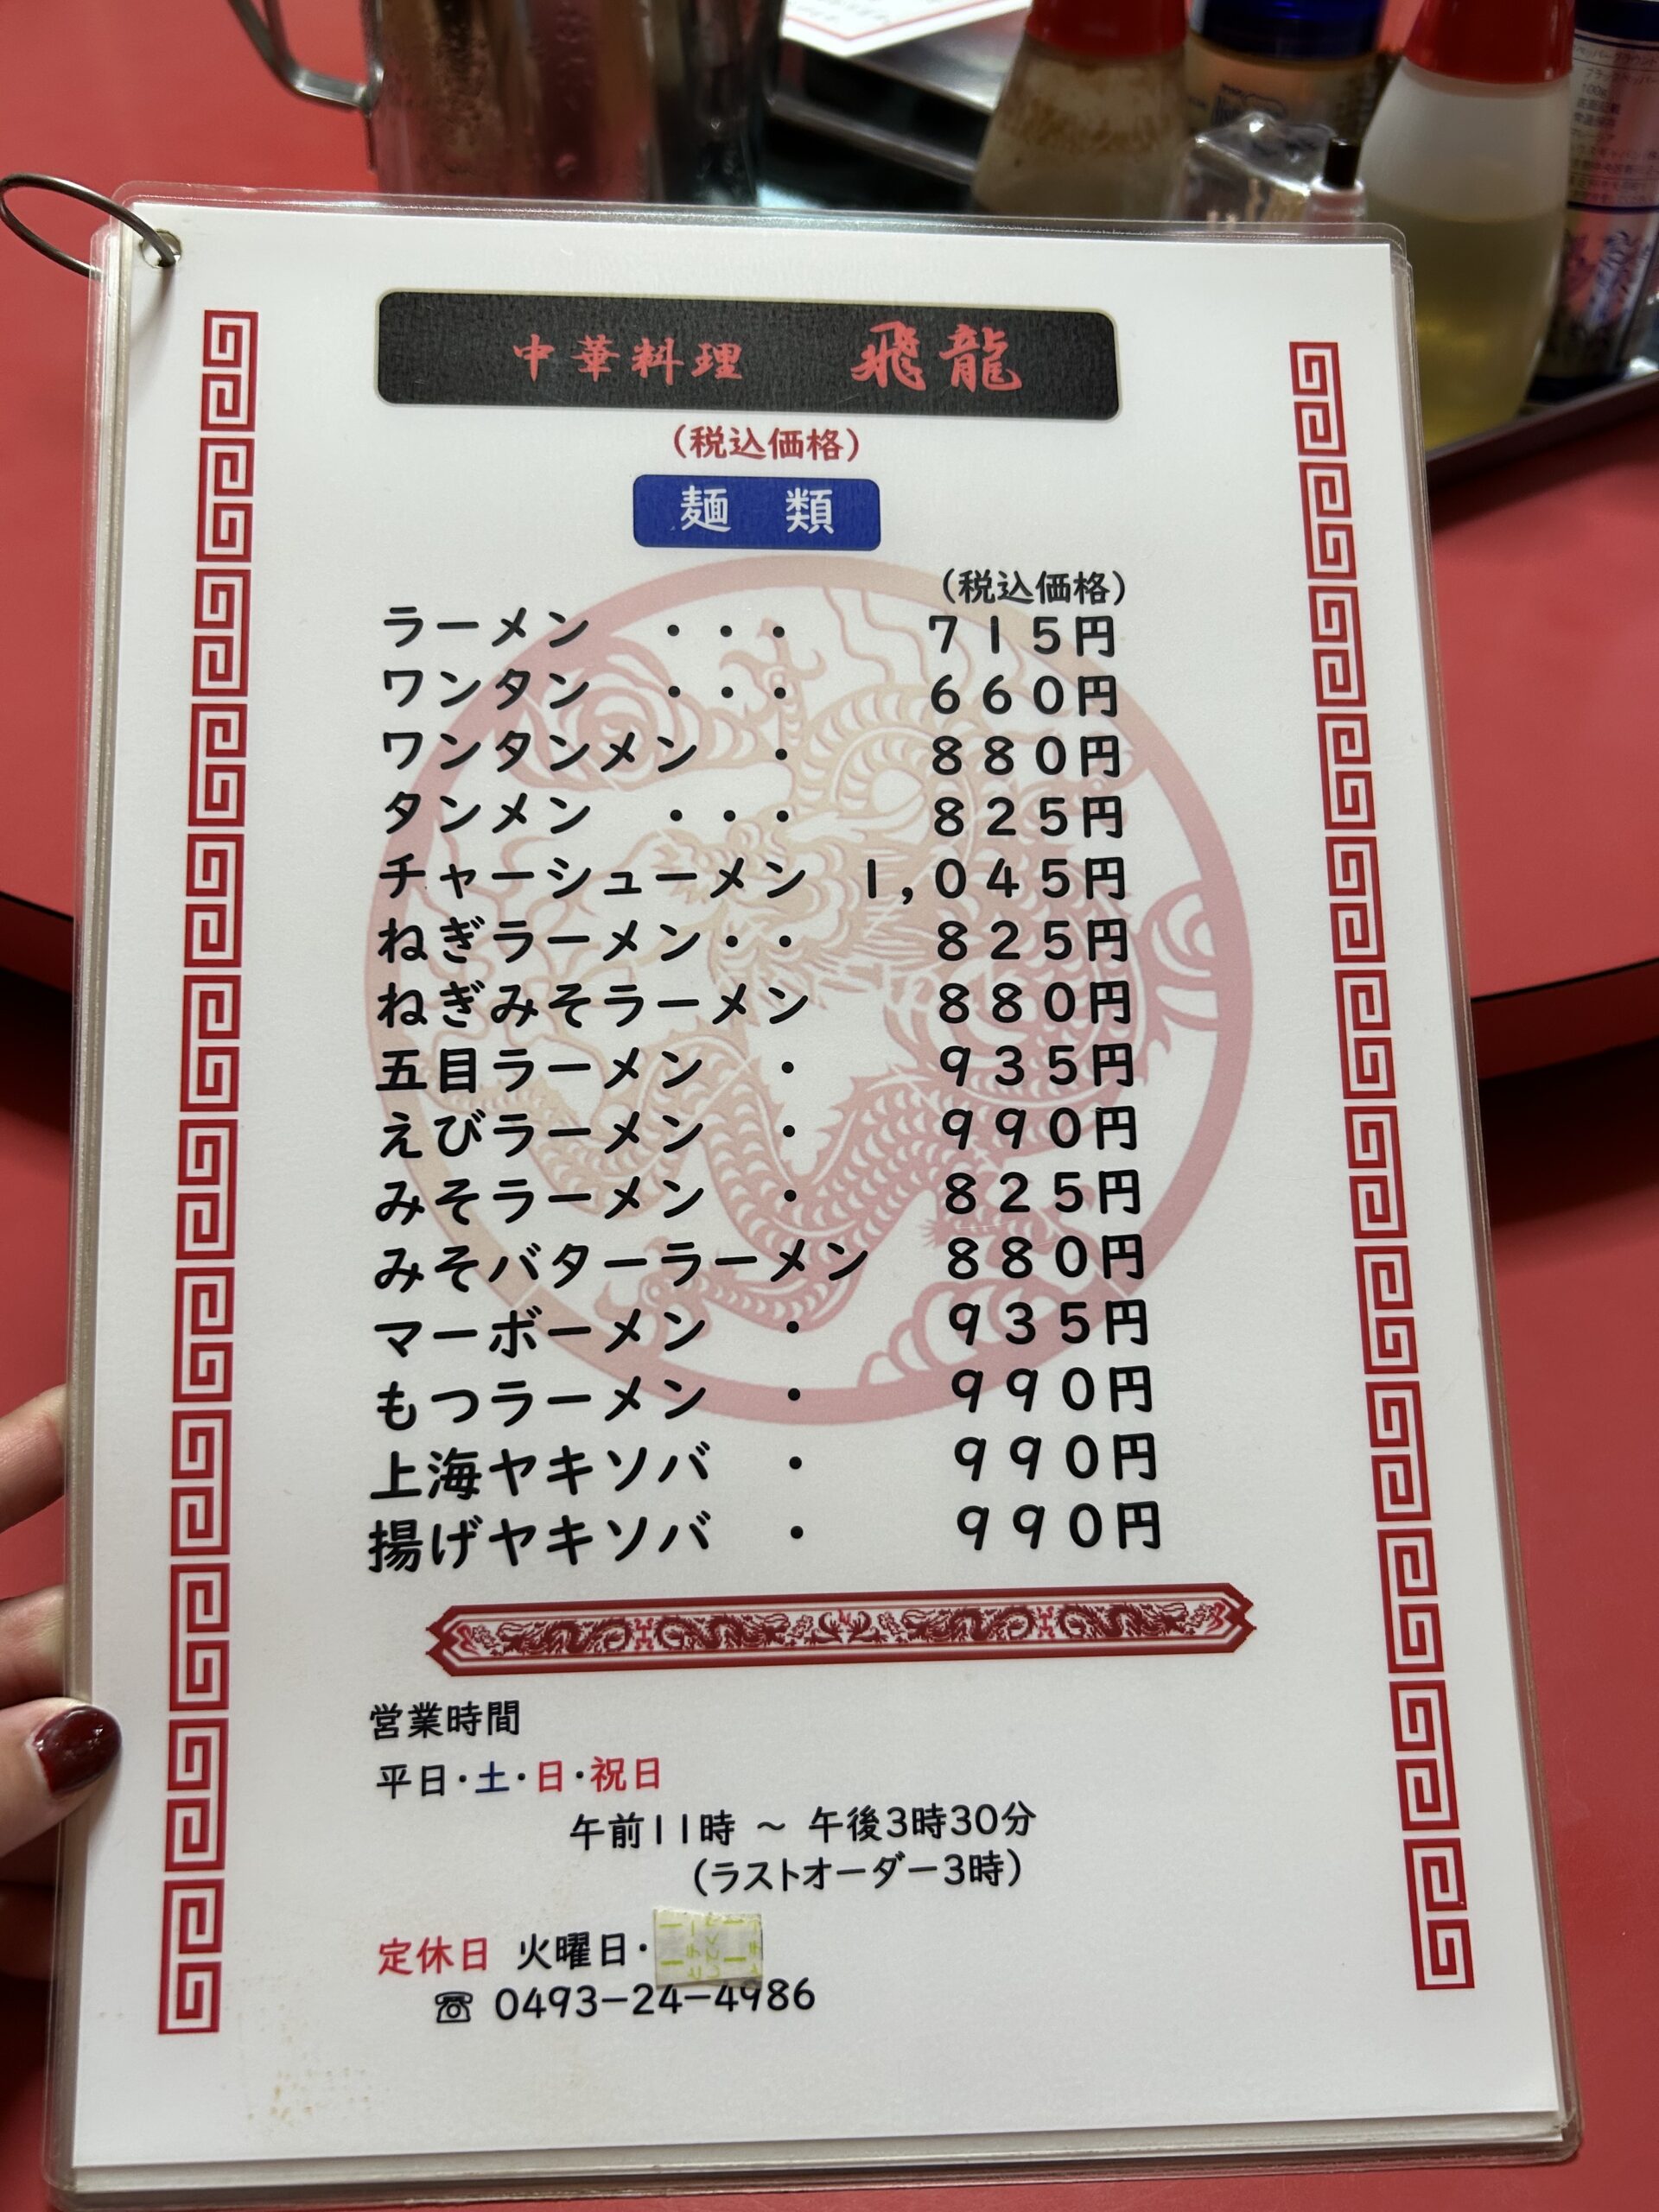 中華料理 飛龍
(税込価格)
麺 類
(税込価格)
ラーメン ・・・ 715円
ワンタン ・・・ 660円
ワンタンメン ・ 880円
タンメン ・・・ 825円
チャーシューメン 1,045円
ねぎラーメン・・ 825円
ねぎみそラーメン 880円
五目ラーメン ・ 935円
えびラーメン ・ 990円
みそラーメン ・ 825円
みそバターラーメン 880円
マーボーメン ・ 935円
もつラーメン ・ 990円
上海ヤキソバ ・ 990円
揚げヤキソバ ・ 990円
営業時間
平日・土・日・祝日
午前11時 ～ 午後3時30分
(ラストオーダー3時)
定休日 火曜日・
☏ 0493-24-4986